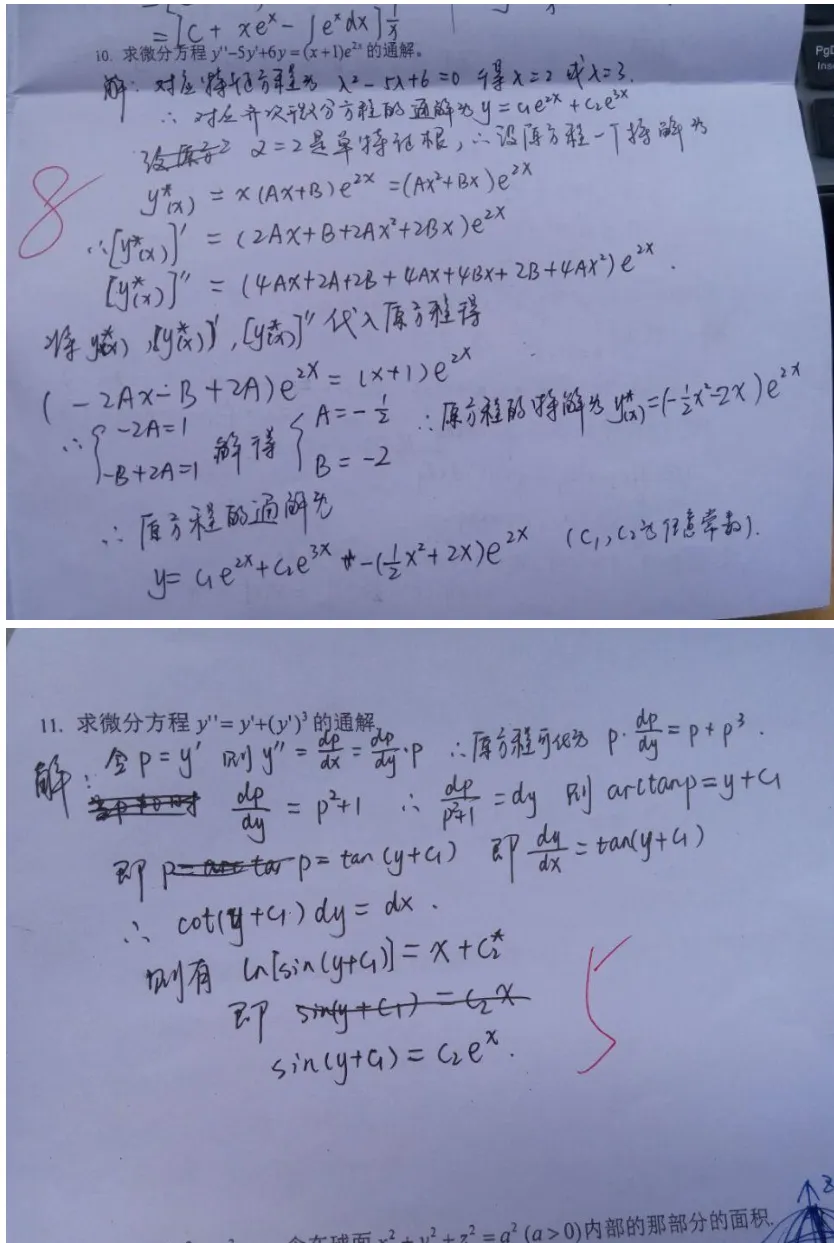 = [C + xeˣ - ∫eˣdx] 1/x
10. 求微分方程 y''-5y'+6y = (x+1)e^{2x} 的通解。
解: 对应特征方程为 λ²-5λ+6=0 得 λ=2 或 λ=3.
∴ 对应齐次微分方程的通解为 y = c₁e^{2x} + c₂e^{3x}
2=2是单特征根, ∴设原方程一个特解为
y*(x) = x(Ax+B)e^{2x} = (Ax²+Bx)e^{2x}
8
∴[y*(x)]' = (2Ax+B+2Ax²+2Bx)e^{2x}
[y*(x)]'' = (4Ax+2A+2B+4Ax+4Bx+2B+4Ax²)e^{2x}.
将 y*(x), [y*(x)]', [y*(x)]'' 代入原方程得
(-2Ax-B+2A)e^{2x} = (x+1)e^{2x}
∴ { -2A=1 -B+2A=1 解得 { A=-1/2 B=-2 ∴原方程的特解为 y*(x)=(-1/2x²-2x)e^{2x}
∴ 原方程的通解为
y= c₁e^{2x}+c₂e^{3x} -(1/2x²+2x)e^{2x} (C₁,C₂为任意常数).
11. 求微分方程 y''= y'+(y')³ 的通解
解: 令 p=y' 则 y''= dp/dx = dp/dy·p ∴原方程可化为 p·dp/dy = p+p³.
dp/dy = p²+1 ∴ dp/p²+1 = dy 则 arctanp = y+C₁
即 p= tan(y+C₁) 即 dy/dx = tan(y+C₁)
∴ cot(y+C₁)dy = dx.
则有 ln[sin(y+C₁)] = x+C₂*
即 sin(y+C₁) = C₂x
sin(y+C₁) = C₂eˣ.
5
含在球面 x²+y²+z²=a² (a>0)内部的那部分的面积.
z